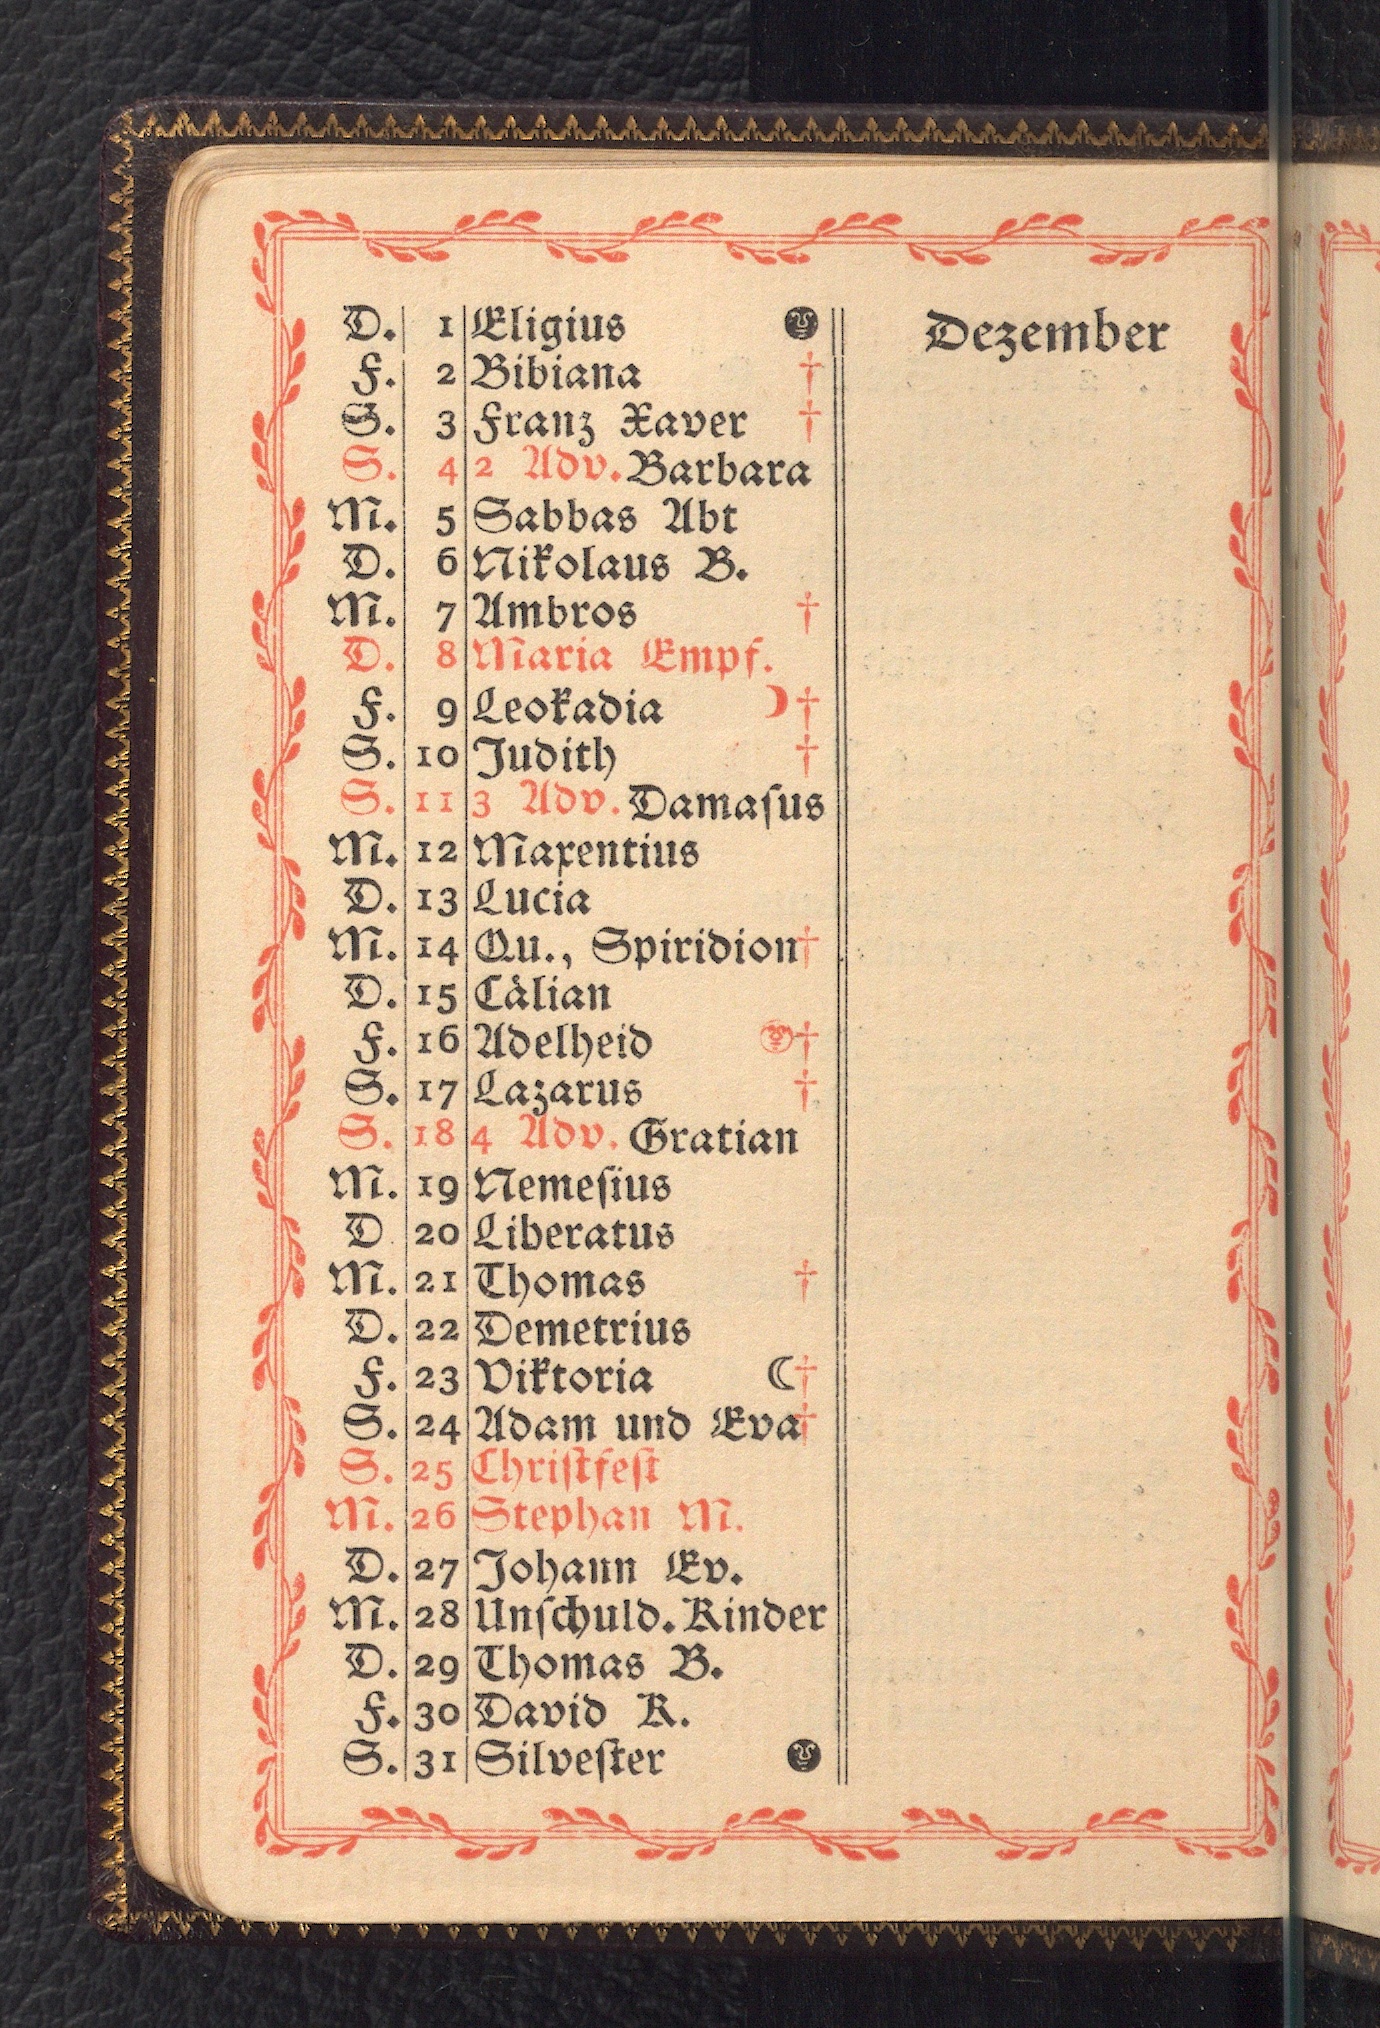 Dezember
D. 1 Eligius
F. 2 Bibiana †
S. 3 Franz Xaver †
S. 4 2 Adv. Barbara
M. 5 Sabbas Abt
D. 6 Nikolaus B.
M. 7 Ambros †
D. 8 Maria Empf.
F. 9 Leokadia ☽†
S. 10 Judith †
S. 11 3 Adv. Damaſus
M. 12 Maxentius
D. 13 Lucia
M. 14 Qu., Spiridion †
D. 15 Cälian
F. 16 Adelheid †
S. 17 Lazarus †
S. 18 4 Adv. Gratian
M. 19 Nemeſius
D. 20 Liberatus
M. 21 Thomas †
D. 22 Demetrius
F. 23 Viktoria ☾†
S. 24 Adam und Eva †
S. 25 Chriſtfeſt
M. 26 Stephan M.
D. 27 Johann Ev.
M. 28 Unſchuld. Kinder
D. 29 Thomas B.
F. 30 David K.
S. 31 Silveſter